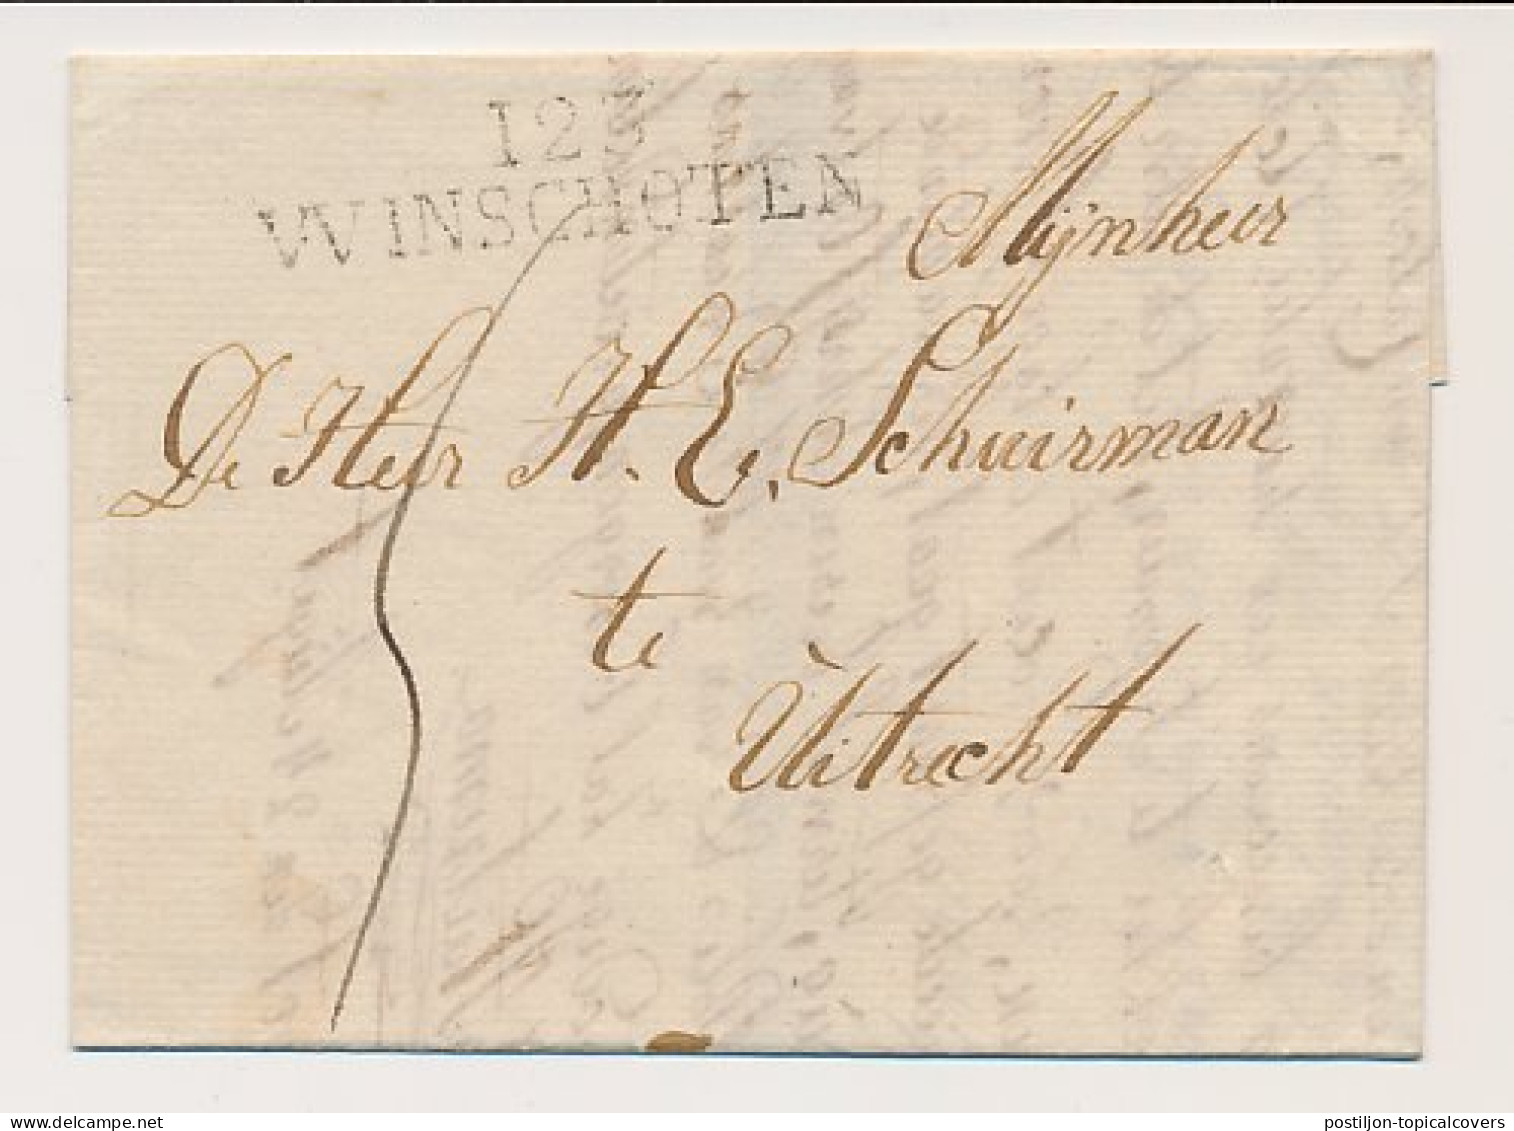 125
WINSCHOTEN
Mijnheer
De Heer H. E. Schuirman
te
Uitrecht
postiljon-topicalcovers